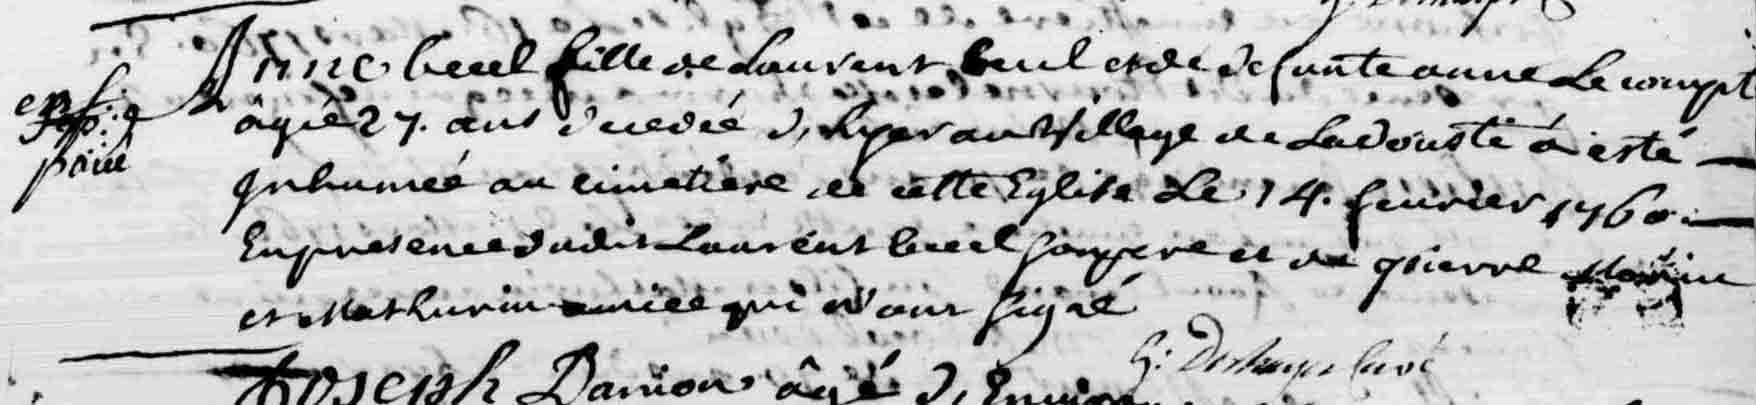 Anne beul fille de Laurent beul et de defunte anne Le compt
âgeé 27. ans decedeé d'hyer au Village de Ladousté à esté
Inhumeé au cimetiere de cette Eglise Le 14. fevrier 1760.
En presence dudit Laurent beul son pere et de pierre
et Mathurin qui n'ont signé
G: Deshayes Curé
Joseph Danion âgé d'Environ